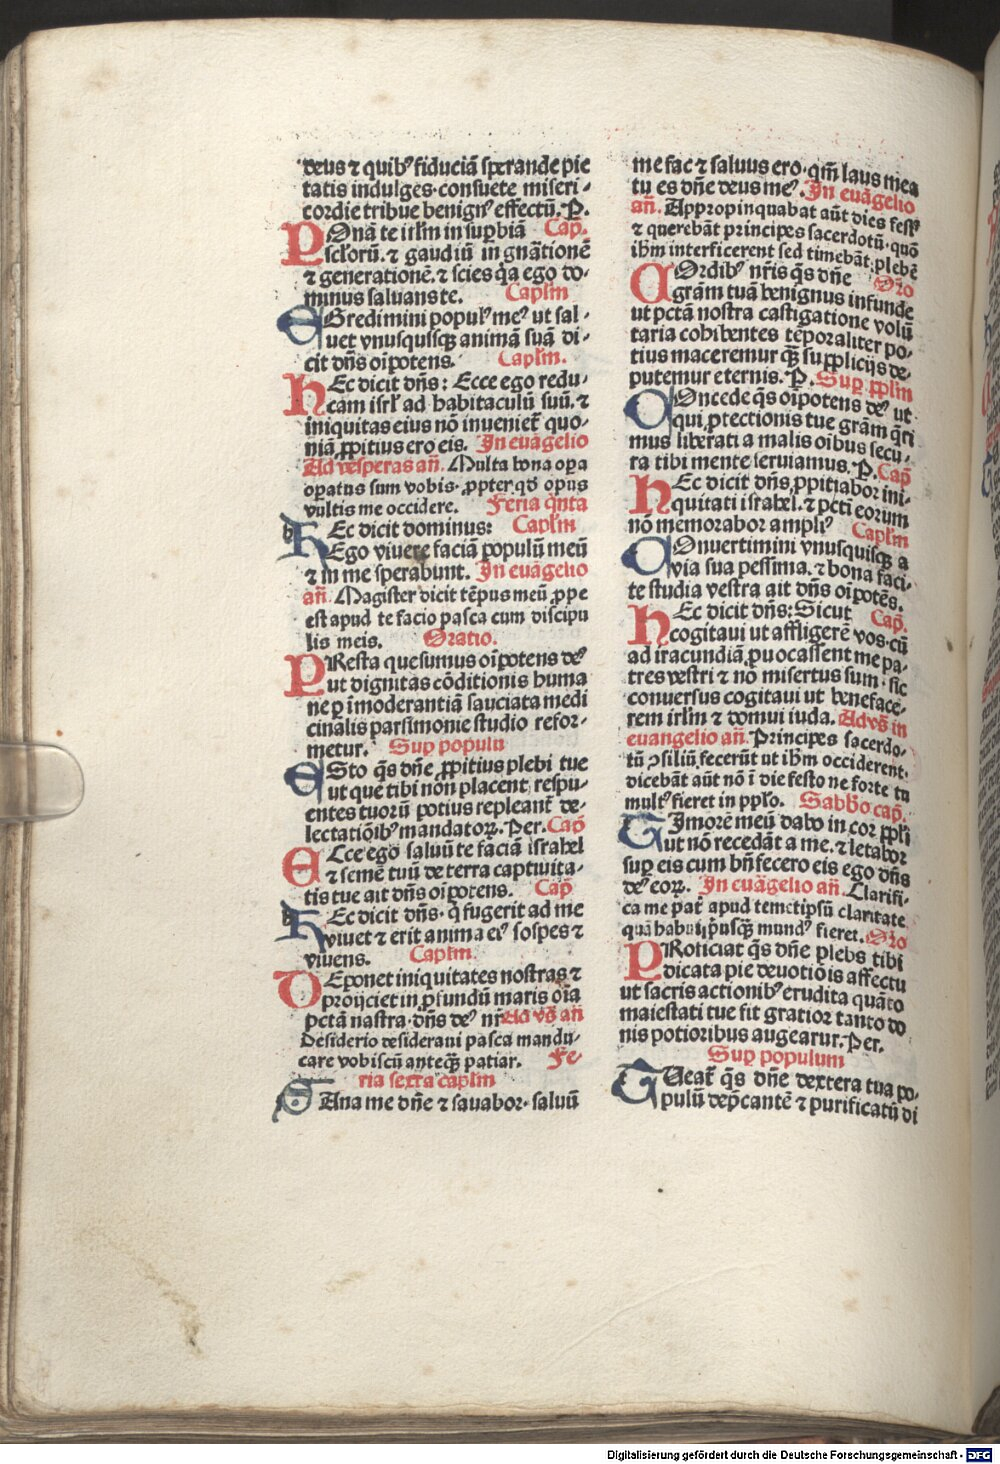 deus ⁊ quibꝰ fiduciā sperande pie
tatis indulges·consuete miseri-
cordie tribue benignꝰ effectū.P.
POnā te irl̄m in suꝑbiā Cap̄.
sclorū.⁊ gaudiū in gn̄ationē
⁊ generationē.⁊ scies q̄a ego do-
minus saluans te. Capl̄m
EGredimini populꝰ meꝰ ut sal-
uet vnusquisqꝫ animā suā di-
cit dn̄s oīpotens. Capl̄m.
hEc dicit dn̄s: Ecce ego redu-
cam isrl̄ ad habitaculū suū.⁊
iniquitas eius nō inueniet̄ quo-
niā ꝓpitius ero eis. In euāgelio
Ad vesperas an̄. Multa bona oꝑa
oꝑatus sum vobis·ꝓpter qd̄ opus
vultis me occidere. Feria q̄nta
hEc dicit dominus: Capl̄m
Ego viuere faciā populū meū
⁊ in me sperabunt. In euāgelio
an̄. Magister dicit tēpus meū ꝓpe
est apud te facio pasca cum discipu
lis meis. Oratio.
PResta quesumus oīpotens deꝰ
ut dignitas cōditionis huma
ne ꝑ īmoderantiā sauciata medi
cinalis parsimonie studio refor-
metur. Suꝑ populū
ESto q̄s dn̄e ꝓpitius plebi tue
ut que tibi non placent respu-
entes tuorū potius repleant̄ de-
lectatiōibꝰ mandatoꝝ.Per. Cap̄
ECce ego saluū te faciā israhel
⁊ semē tuū de terra captiuita-
tis tue ait dn̄s oīpotens. Cap̄
hEc dicit dn̄s·q̄ fugerit ad me
viuet ⁊ erit anima eiꝰ sospes ⁊
viuens. Capl̄m
DEponet iniquitates nostras ⁊
proijciet in ꝓfundū maris oīa
pctā nastra·dn̄s deꝰ nr̄ Ad vs̄ an̄
Desiderio desideraui pasca mandu-
care vobiscū anteqꝫ patiar. Fe
ria sexta capl̄m
SAna me dn̄e ⁊ savabor·saluū
me fac ⁊ saluus ero·qm̄ laus mea
tu es dn̄e deus meꝰ. In euāgelio
an̄. Appropinquabat aūt dies festꝰ
⁊ querebāt principes sacerdotū·quō
ihm̄ interficerent sed timebāt plebē
COrdibꝰ nr̄is q̄s dn̄e Or̄o
grām tuā benignus infunde
ut pctā nostra castigatione volū
taria cohibentes tēporaliter po-
tius maceremur qꝫ suppliciis de-
putemur eternis.P. Suꝑ ppl̄m
COncede q̄s oīpotens deꝰ ut
qui ꝓtectionis tue grām q̄ri
mus liberati a malis oībus secu-
ra tibi mente seruiamus.P. Cap̄
hEc dicit dn̄s ꝓpitiabor ini-
quitati israhel.⁊ pcti eorum
nō memorabor ampliꝰ Capl̄m
COnuertimini vnusquisqꝫ a
via sua pessima.⁊ bona faci-
te studia vestra ait dn̄s oīpotēs.
hEc dicit dn̄s:Sicut Cap̄.
cogitaui ut affligerē vos·cū
ad iracundiā ꝓuocassent me pa-
tres vestri ⁊ nō misertus sum·sic
conuersus cogitaui ut beneface-
rem irl̄m ⁊ domui iuda. Ad vs̄ in
euangelio an̄. Principes sacerdo-
tū ꝯsiliū fecerūt ut ihm̄ occiderent·
dicebāt aūt nō ī die festo ne forte tu
multꝰ fieret in pplo. Sabbo cap̄.
TImorē meū dabo in cor ppl̄i
ut nō recedāt a me.⁊ letabor
suꝑ eis cum bn̄fecero eis ego dn̄s
deꝰ eoꝝ. In euāgelio an̄. Clarifi-
ca me pat̄ apud temetipsū claritate
quā habui pusqꝫ mundꝰ fieret. Or̄o
PRoficiat q̄s dn̄e plebs tibi
dicata pie deuotiōis affectu
ut sacris actionibꝰ erudita quāto
maiestati tue fit gratior tanto do
nis potioribus augeatur.Per.
Suꝑ populum
TUeat̄ q̄s dn̄e dextera tua po-
pulū dep̄cantē ⁊ purificatū di
Digitalisierung gefördert durch die Deutsche Forschungsgemeinschaft - DFG